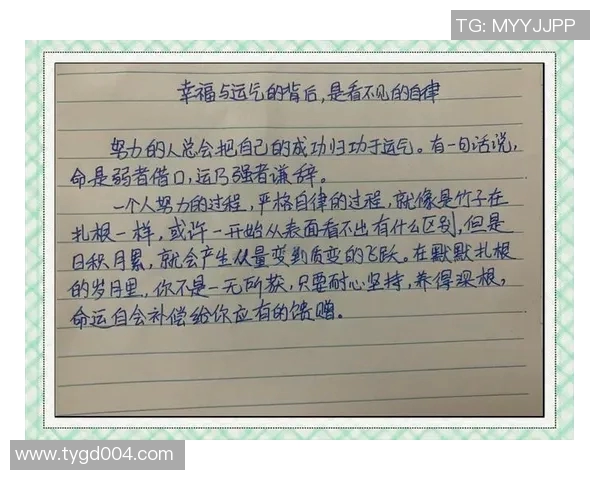 TG: MYYJJPP
幸福与运气的背后，是看不见的自律
努力的人总会把自己的成功归功于运气。有一句话说，
命是弱者借口，运乃强者谦辞。
一个人努力的过程，严格自律的过程，就像是竹子在
扎根一样，或许一开始从表面看不出有什么区别，但是
日积月累，就会产生从量变到质变的飞跃。在默默扎根
的岁月里，你不是一无所获，只要耐心坚持，养得深根，
命运自会补偿给你应有的馈赠。
www.tygd004.com